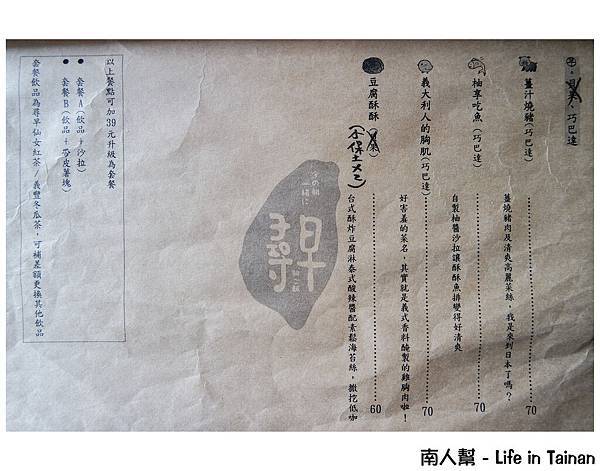 巧巴達
薑汁燒豬(巧巴達)
薑燒豬肉及清爽高麗菜絲，我是來到日本了嗎？ 70
柚享吃魚(巧巴達)
自製柚醬沙拉讓酥酥魚排變得好清爽 70
義大利人的胸肌(巧巴達)
好害羞的菜名，其實就是義式香料醃製的雞胸肉啦！ 70
豆腐酥酥
台式酥炸豆腐淋泰式酸辣醬配素鬆海苔絲，撒挖低咖 60
尋早
以上餐點可加39元升級為套餐
● 套餐A(飲品+沙拉)
● 套餐B(飲品+帶皮薯塊)
套餐飲品為尋早仙女紅茶/義豐冬瓜茶，可補差額更換其他飲品
南人幫 - Life in Tainan